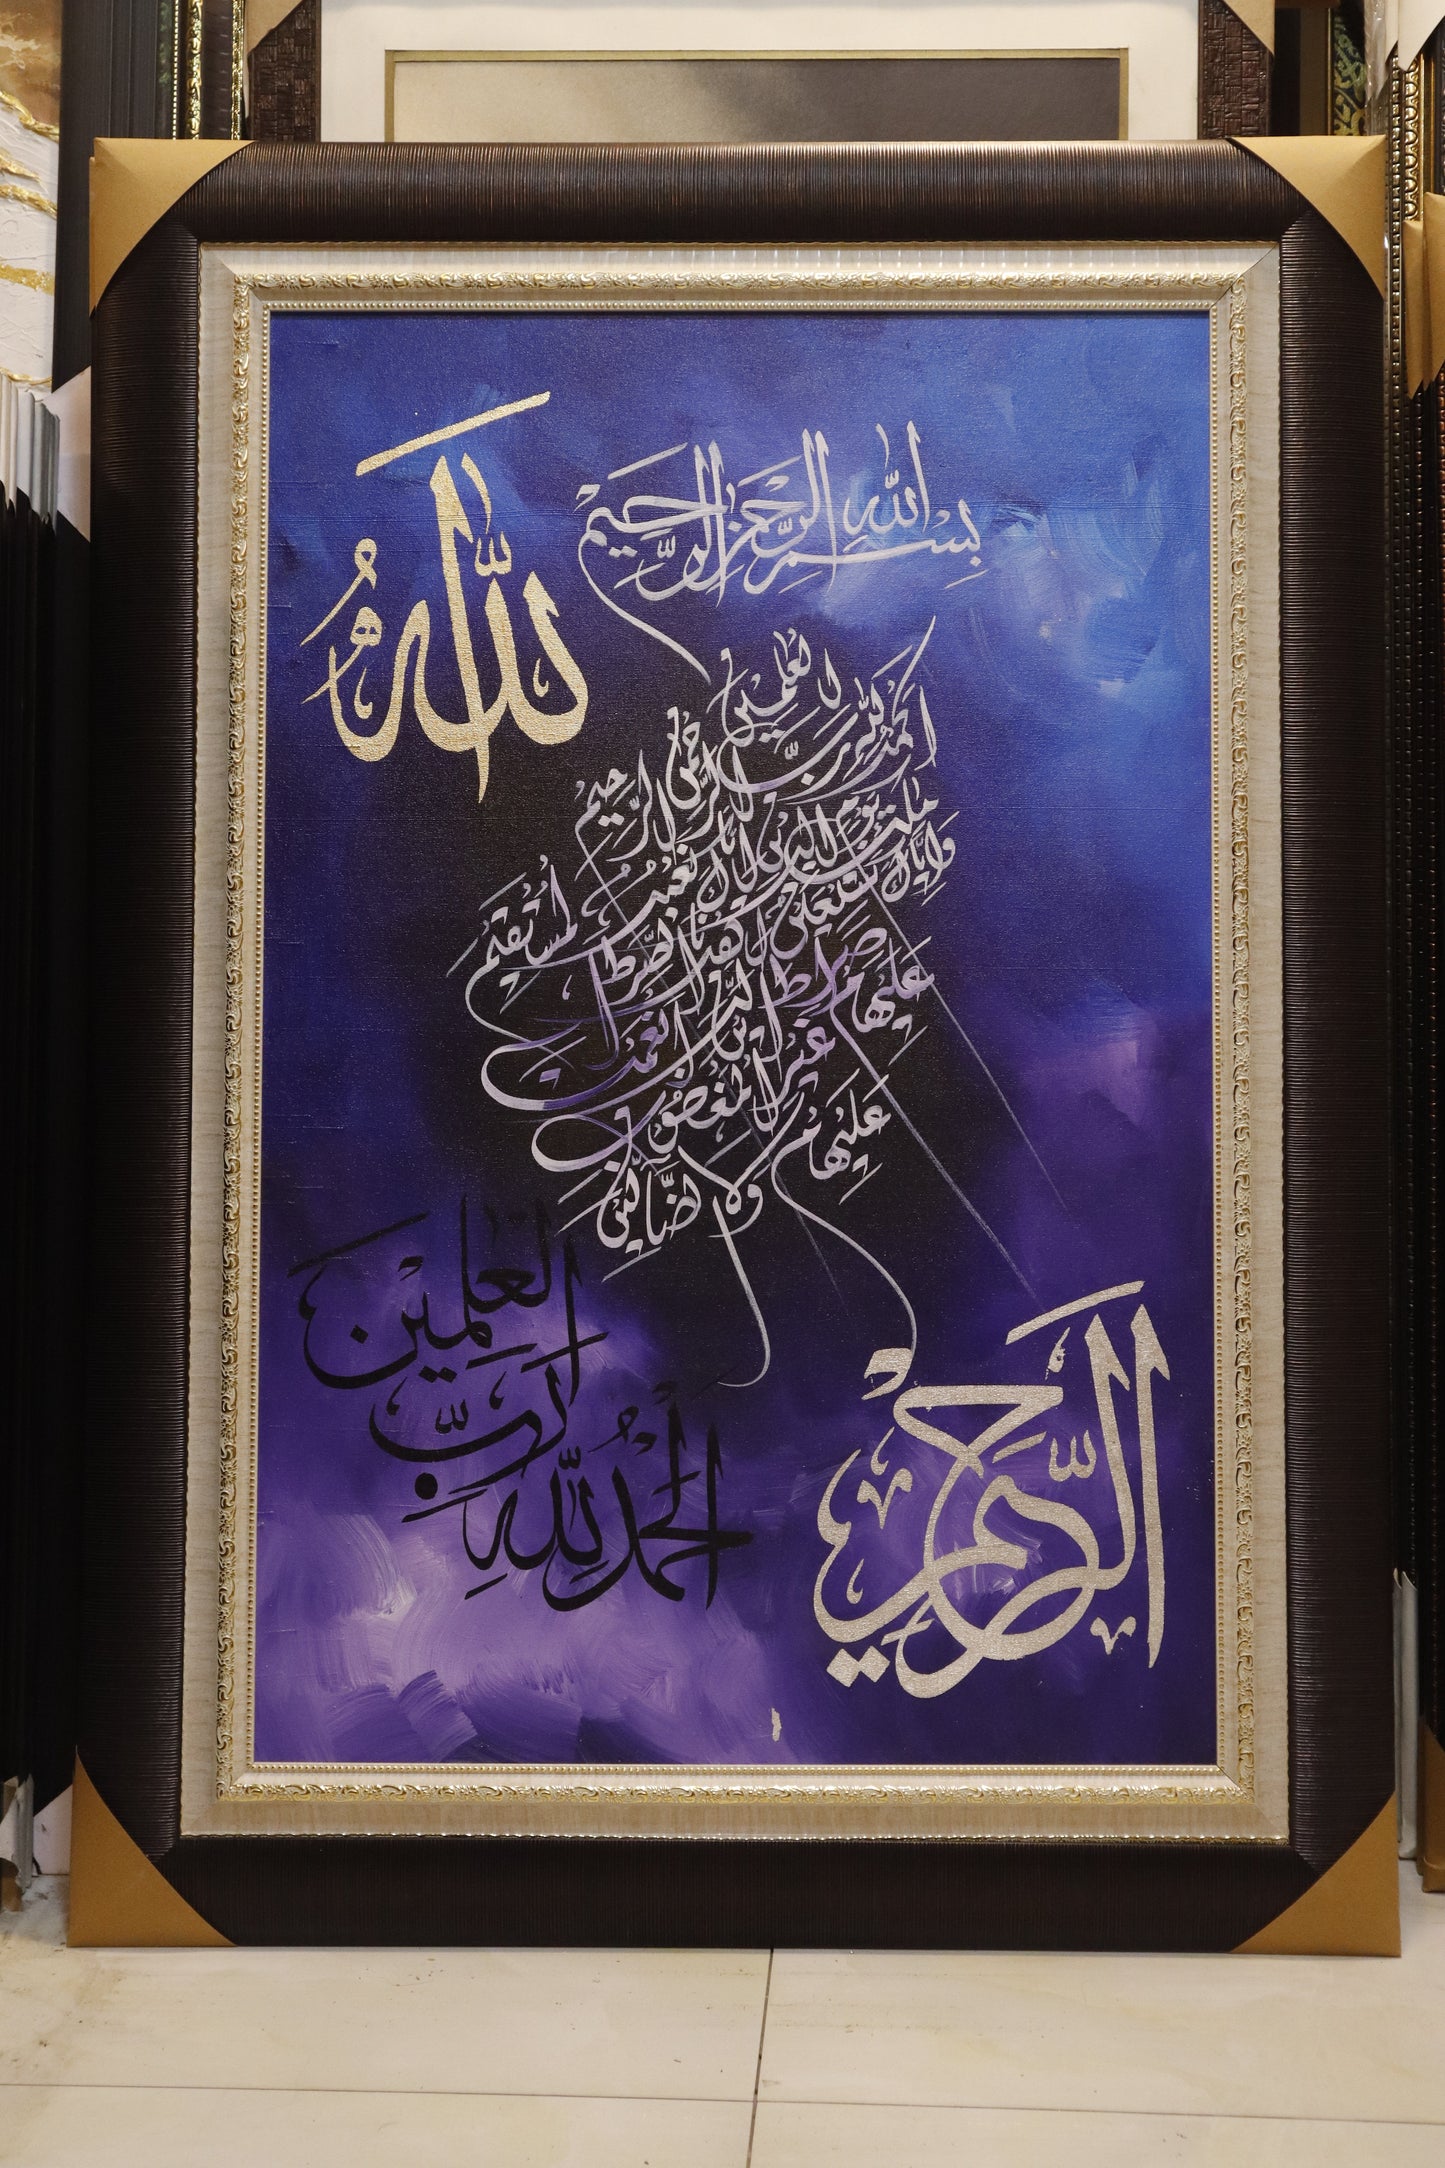 الله
بِسْمِ اللهِ الرَّحْمٰنِ الرَّحِيْمِ
الحمد لله رب العلمين
الرحمن الرحيم
ملك يوم الدين اياك نعبد
واياك نستعين اهدنا الصراط المستقيم
صراط الذين انعمت عليهم
غير المغضوب
عليهم ولا الضالين
العلمين
رب
الحمد لله
الرحيم